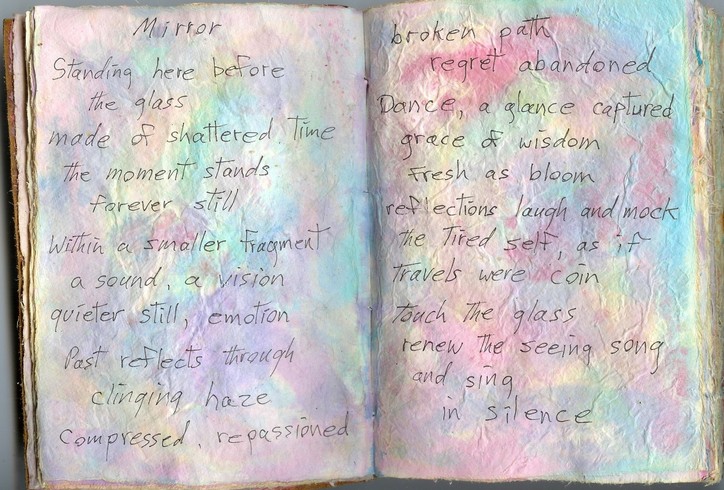 Mirror
Standing here before
the glass
made of shattered Time
the moment stands
forever still
Within a smaller fragment
a sound, a vision
quieter still, emotion
Past reflects through
clinging haze
Compressed, repassioned
broken path
regret abandoned
Dance, a glance captured
grace of wisdom
Fresh as bloom
reflections laugh and mock
the Tired self, as if
Travels were coin
Touch The glass
renew the seeing song
and sing
in silence